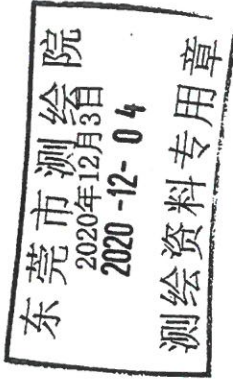 东莞市测绘院
2020年12月3日
2020-12-04
测绘资料专用章